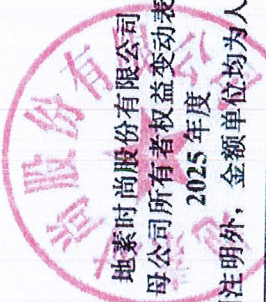 地素时尚股份有限公司
母公司所有者权益变动表
2025 年度
注明外，金额单位均为人
股份有